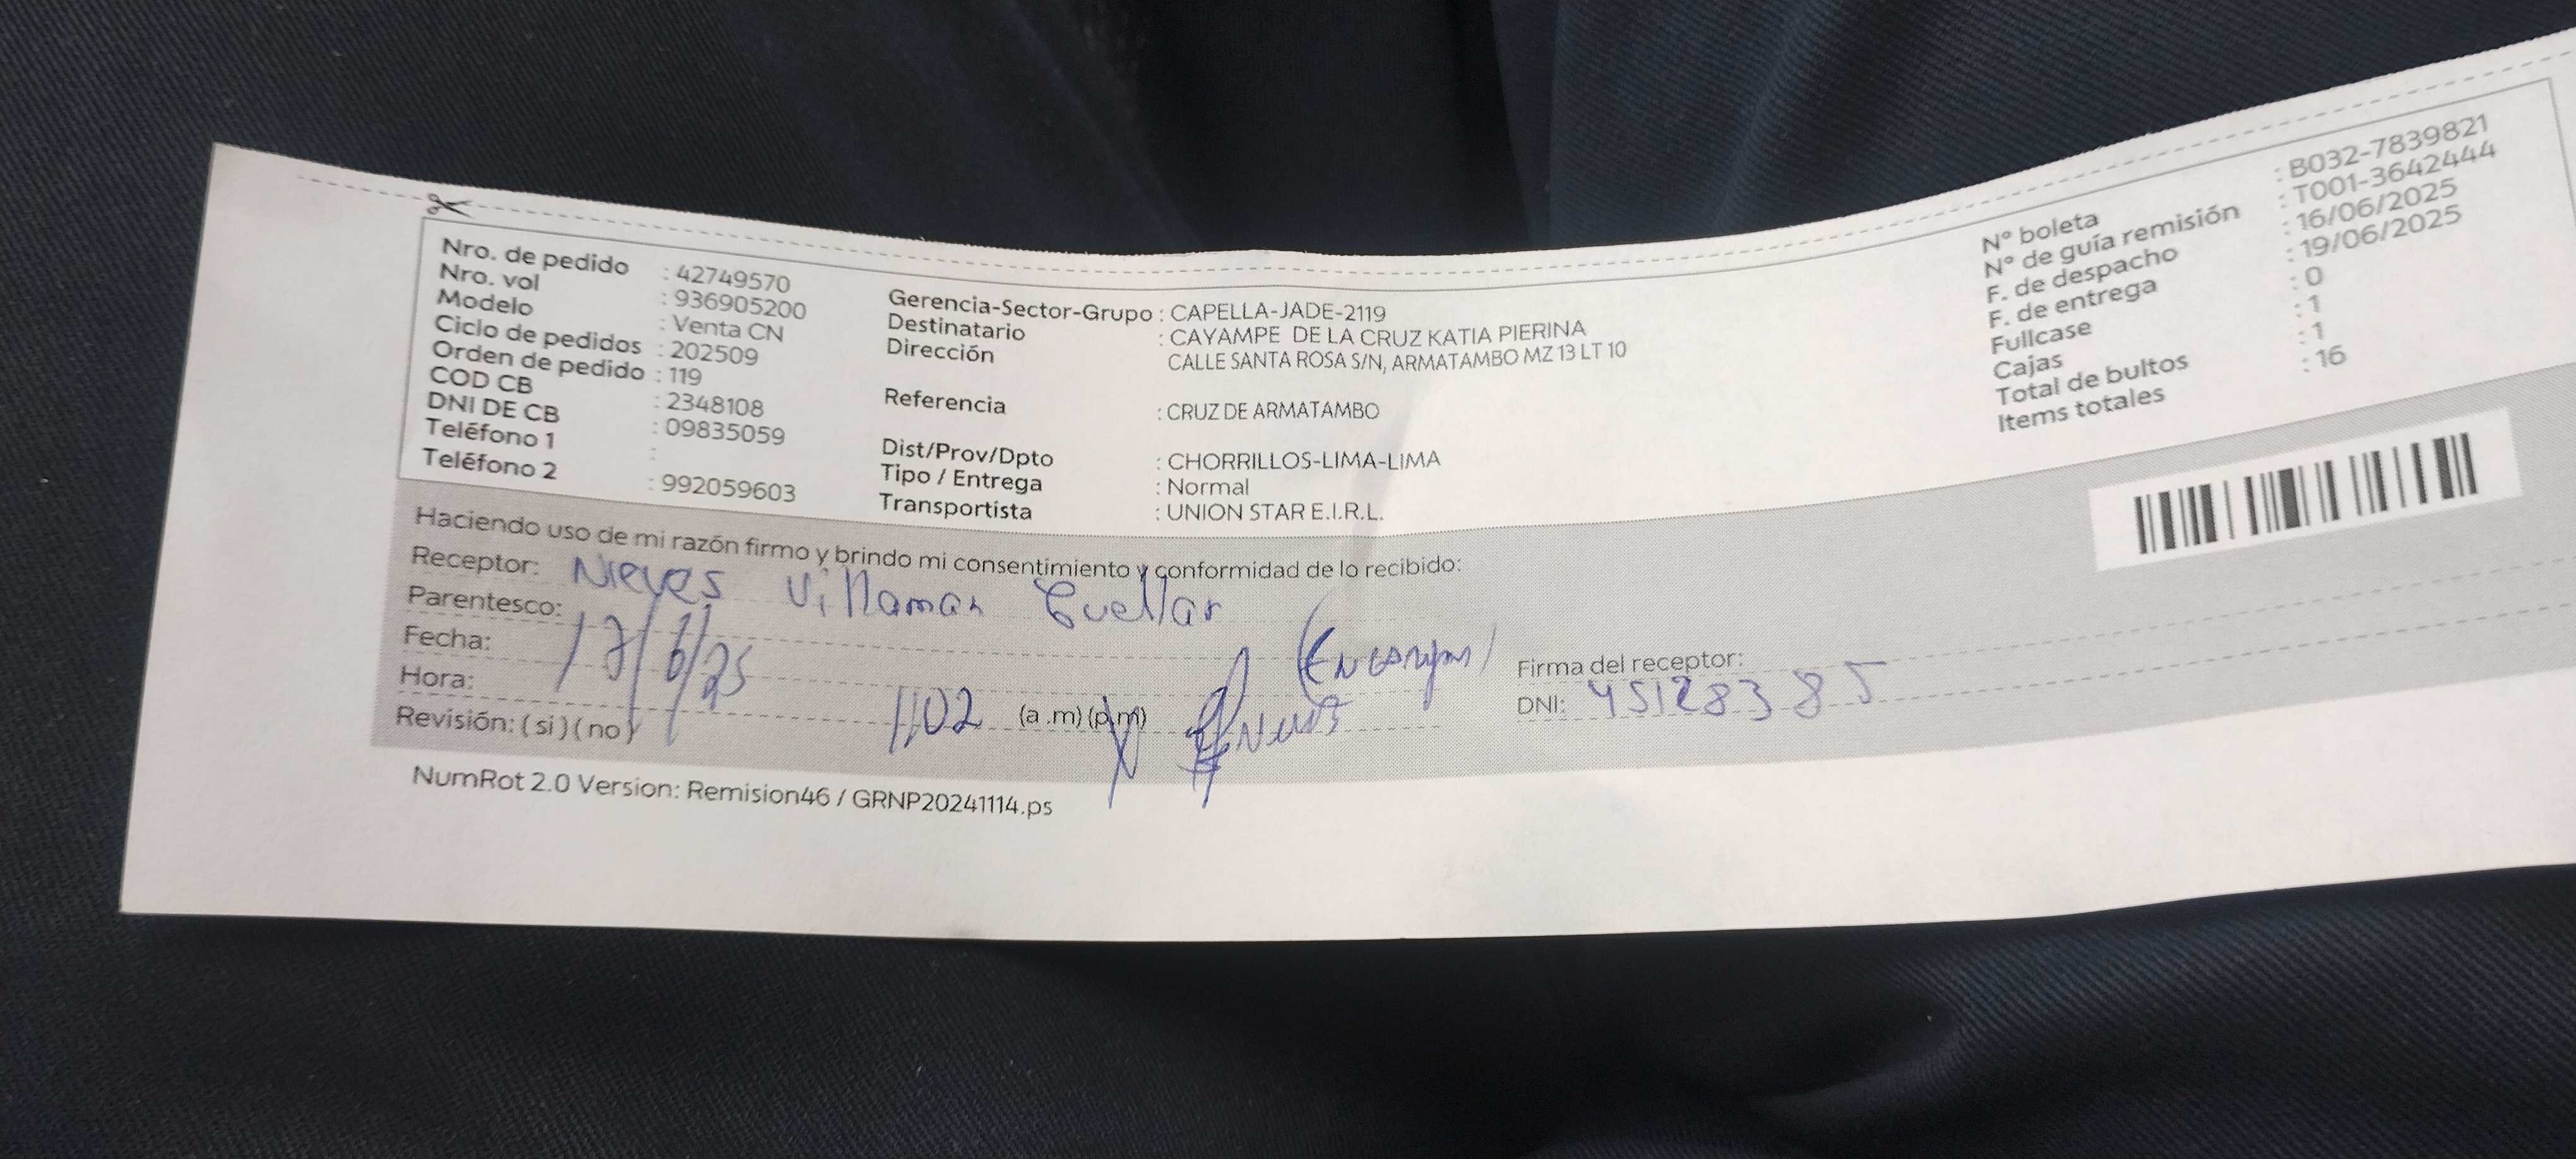 Nro. de pedido : 42749570
Nro. vol : 936905200
Modelo : Venta CN
Ciclo de pedidos : 202509
Orden de pedido : 119
COD CB : 2348108
DNI DE CB : 09835059
Teléfono 1 :
Teléfono 2 : 992059603
Gerencia-Sector-Grupo : CAPELLA-JADE-2119
Destinatario : CAYAMPE DE LA CRUZ KATIA PIERINA
Dirección CALLE SANTA ROSA S/N, ARMATAMBO MZ 13 LT 10
Referencia : CRUZ DE ARMATAMBO
Dist/Prov/Dpto : CHORRILLOS-LIMA-LIMA
Tipo / Entrega : Normal
Transportista : UNION STAR E.I.R.L.
N° boleta : B032-7839821
N° de guía remisión : T001-3642444
F. de despacho : 16/06/2025
F. de entrega : 19/06/2025
Fullcase : 0
Cajas : 1
Total de bultos : 1
Items totales : 16
Haciendo uso de mi razón firmo y brindo mi consentimiento y conformidad de lo recibido:
Receptor: Nieves Villaman Cuellar
Parentesco:
Fecha: 17/6/25
Hora: 1102 (a .m) (p.m)
Revisión: ( si ) ( no )
Firma del receptor:
DNI: 45128385
NumRot 2.0 Version: Remision46 / GRNP20241114.ps